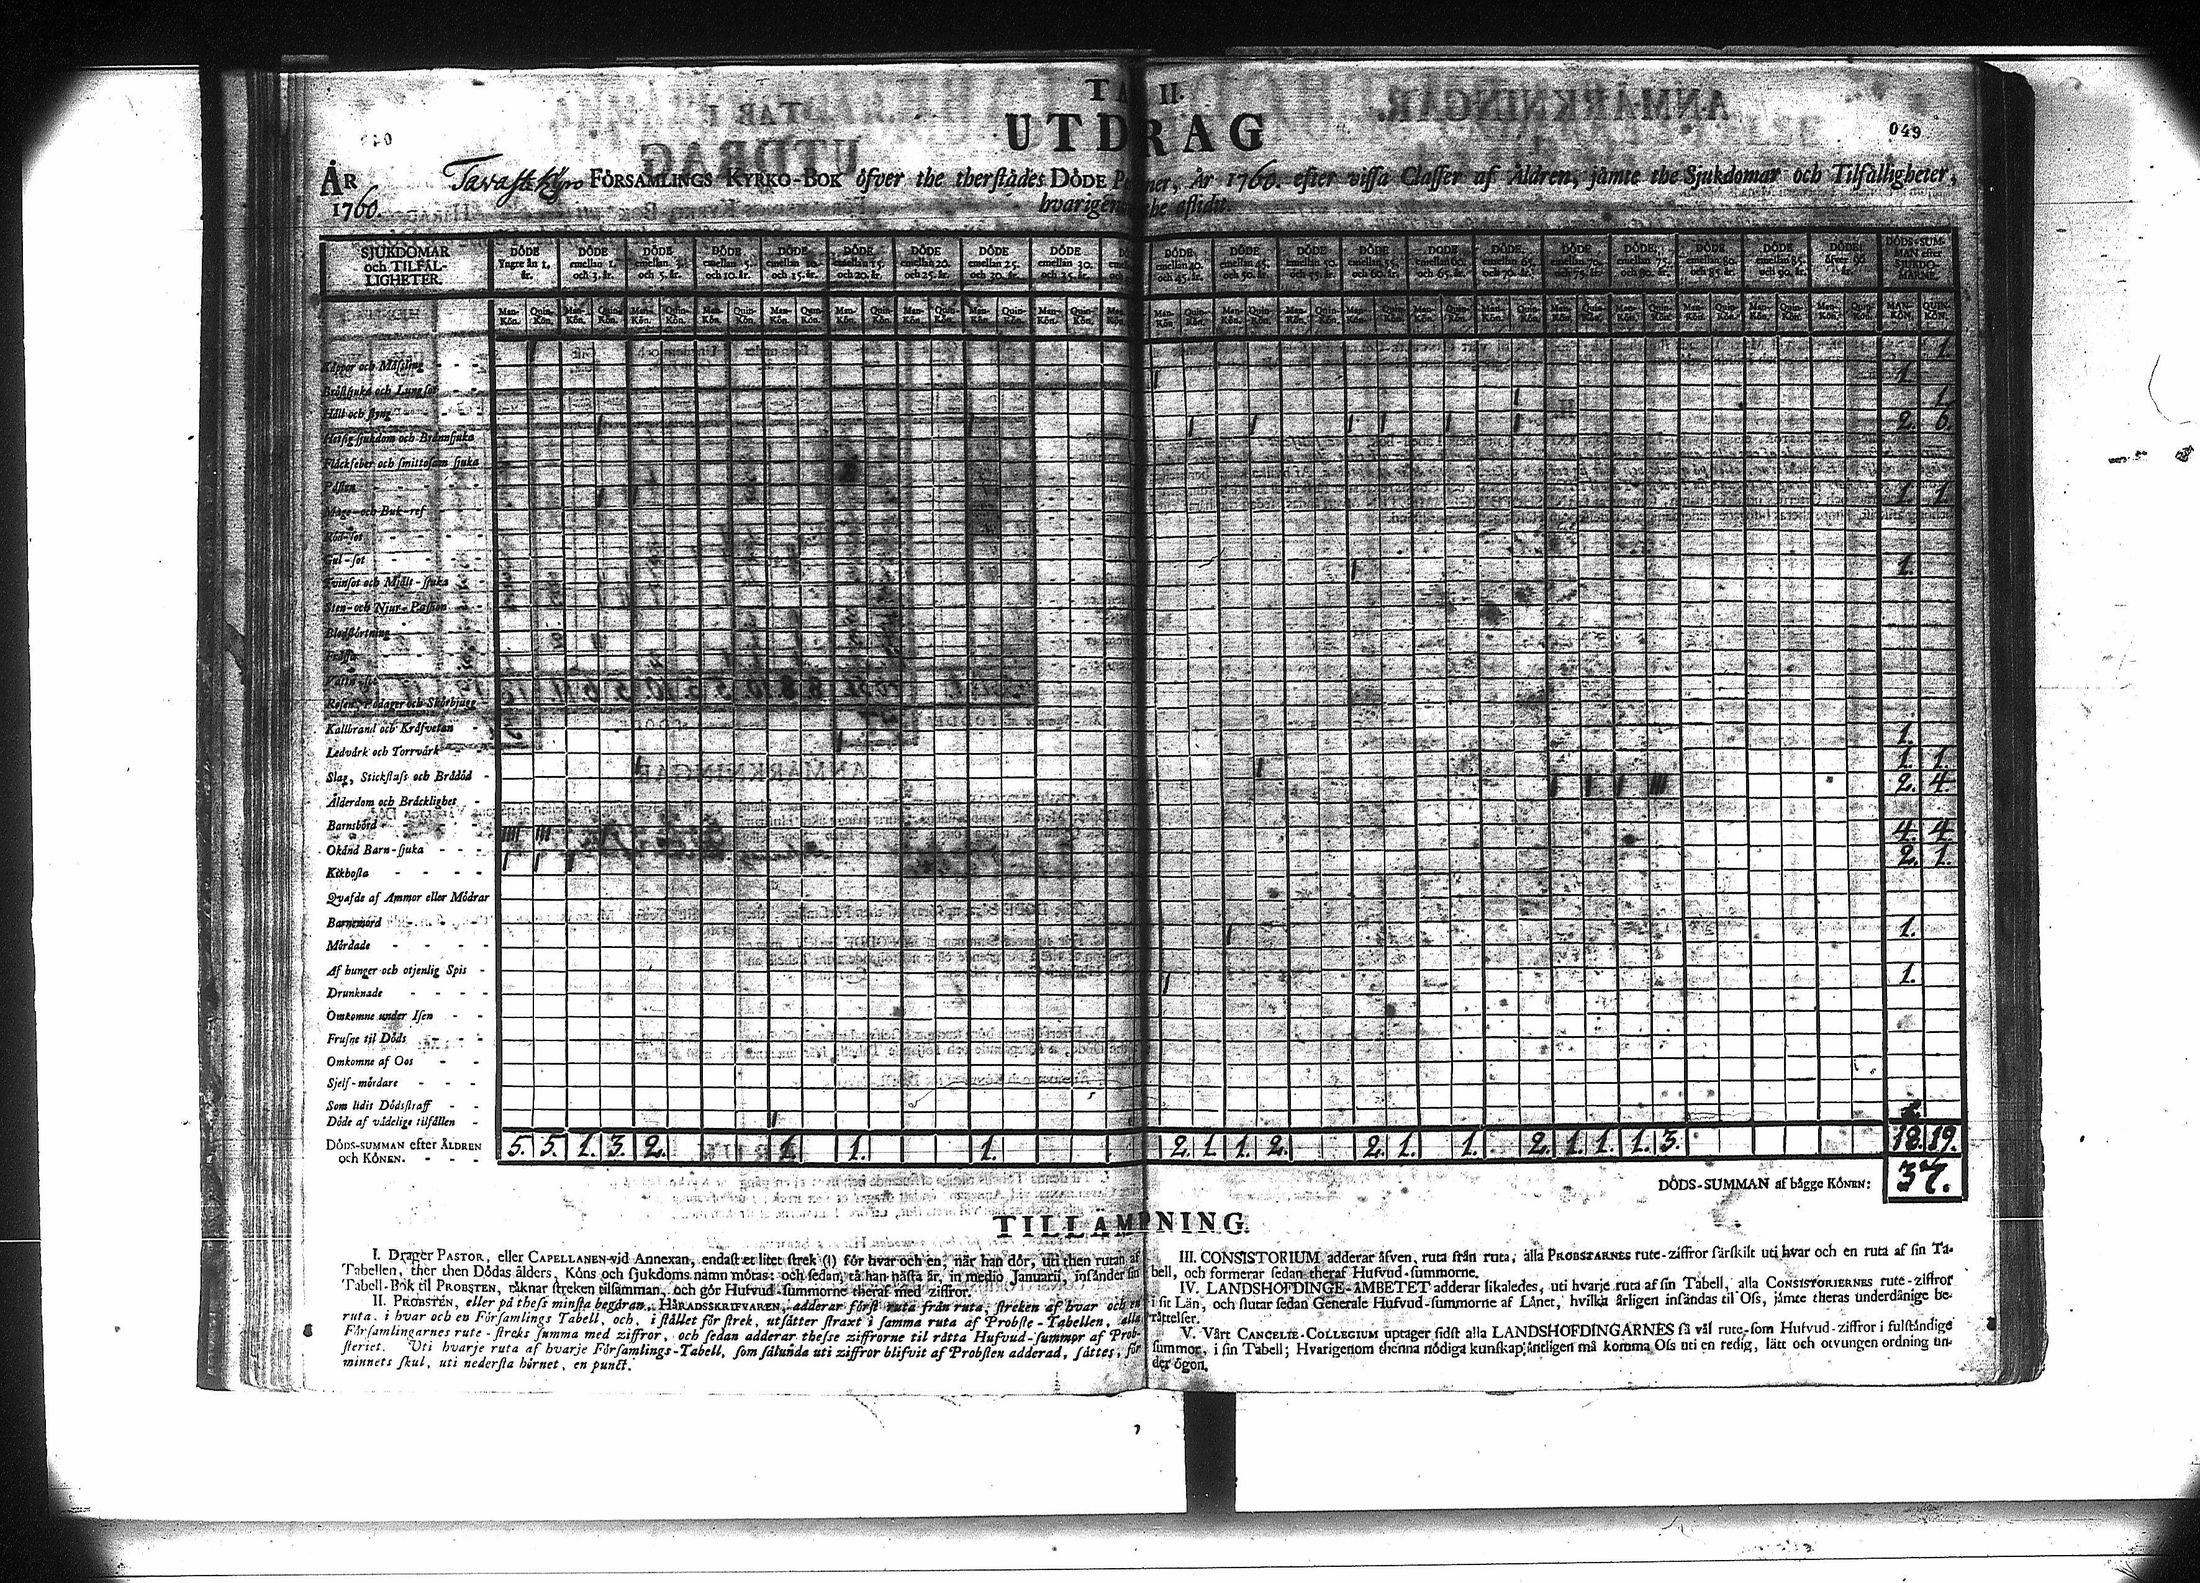 TAB II.
049
UTDRAG
ÅR 1760.
Tavastkyro FÖRSAMLINGS KYRKO-BOK öfver the therstädes DÖDE Personer, År 1760. efter vissa Classer af Åldren, jämte the Sjukdomar och Tilfälligheter,
hvarigenom the aflidit.
SJUKDOMAR och TILFÄLLIGHETER.
DÖDE Yngre än 1. år.
DÖDE emellan 1. och 3. år.
DÖDE emellan 3. och 5. år.
DÖDE emellan 5. och 10. år.
DÖDE emellan 10. och 15. år.
DÖDE emellan 15. och 20. år.
DÖDE emellan 20. och 25. år.
DÖDE emellan 25. och 30. år.
DÖDE emellan 30. och 35. år.
DÖDE emellan 40. och 45. år.
DÖDE emellan 45. och 50. år.
DÖDE emellan 50. och 55. år.
DÖDE emellan 55. och 60. år.
DÖDE emellan 60. och 65. år.
DÖDE emellan 65. och 70. år.
DÖDE emellan 70. och 75. år.
DÖDE emellan 75. och 80. år.
DÖDE emellan 80. och 85. år.
DÖDE emellan 85. och 90. år.
DÖDE öfver 90 år.
DÖDS-SUMMAN efter SJUKDOMARNE.
Man-Kön. Quin-Kön.
Koppor och Mässling 1.
Bröstsjuka och Lungsot 1.
Håll och styng 1.
Hetsig sjukdom och Brännsjuka 2. 6.
Fläckfeber och smittosam sjuka
Pästen
Mage- och Buk-ref 1. 1.
Röd-sot
Gul-sot
Tvinsot och Mjält-sjuka 1.
Sten- och Njur-Passion
Blodstörtning
Frossa
Vattu-sot
Rosen, Podager och Skörbjugg
Kallbrand och Kräfvetan 1.
Ledvärk och Torrvärk 1. 1.
Slag, Stickflass och Brådöd 2. 4.
Ålderdom och Bräcklighet
Barnsbörd 4. 4.
Okänd Barn-sjuka 2. 1.
Kikhosta
Qvafde af Ammor eller Mödrar
Barnemord 1.
Mördade
Af hunger och otjenlig Spis 1.
Drunknade
Omkomne under Isen
Frusne til Döds
Omkomne af Oos
Sjelf-mördare
Som lidit Dödsstraff
Döde af vådelige tilfällen 1.
DÖDS-SUMMAN efter ÅLDREN och KÖNEN. 5. 5. 1. 3. 2. 1. 1. 1. 2. 1. 1. 2. 2. 1. 1. 2. 1. 1. 1. 3. 18. 19.
DÖDS-SUMMAN af bägge KÖNEN: 37.
TILLÄMPNING.
I. Drager PASTOR, eller CAPELLANEN vid Annexan, endast et litet strek (I) för hvar och en, när han dör, uti then rutan af
Tabellen, ther then Dödas ålders, Köns och sjukdoms namn mötas: och sedan, tå han nästa år, in medio Januarii, insänder sin
Tabell-Bok til PROBSTEN, räknar streken tillsamman, och gör Hufvud-summorne theraf med ziffror.
II. PROBSTEN, eller på thess minsta begäran, HÄRADSSKRIFVAREN, adderar först ruta från ruta, streken af hvar och en
ruta, i hvar och en Församlings Tabell, och, i stället för strek, utsätter straxt i samma ruta af Probste-Tabellen, alla
Församlingarnes rute-streks summa med ziffror, och sedan adderar thesse ziffrorne til rätta Hufvud-summor af Prob-
steriet. Uti hvarje ruta af hvarje Församlings-Tabell, som sålunda uti ziffror blifvit af Probsten adderad, sättes, för
minnets skul, uti nedersta hörnet, en punct.
III. CONSISTORIUM adderar äfven, ruta från ruta, alla PROBSTARNES rute-ziffror särskilt uti hvar och en ruta af sin Ta-
bell, och formerar sedan theraf Hufvud-summorne.
IV. LANDSHÖFDINGE-ÄMBETET adderar likaledes, uti hvarje ruta af sin Tabell, alla CONSISTORIERNES rute-ziffror
i sit Län, och slutar sedan Generale Hufvud-summorne af Länet, hvilka årligen insändas til Oss, jämte theras underdånige be-
rättelser.
V. Vårt CANCELIE-COLLEGIUM uptager sidst alla LANDSHÖFDINGARNES så väl rute-som Hufvud-ziffror i fulständige
summor, i sin Tabell; Hvarigenom thenna nödiga kunskap äntligen må komma Oss uti en redig, lätt och otvungen ordning un-
der ögon.